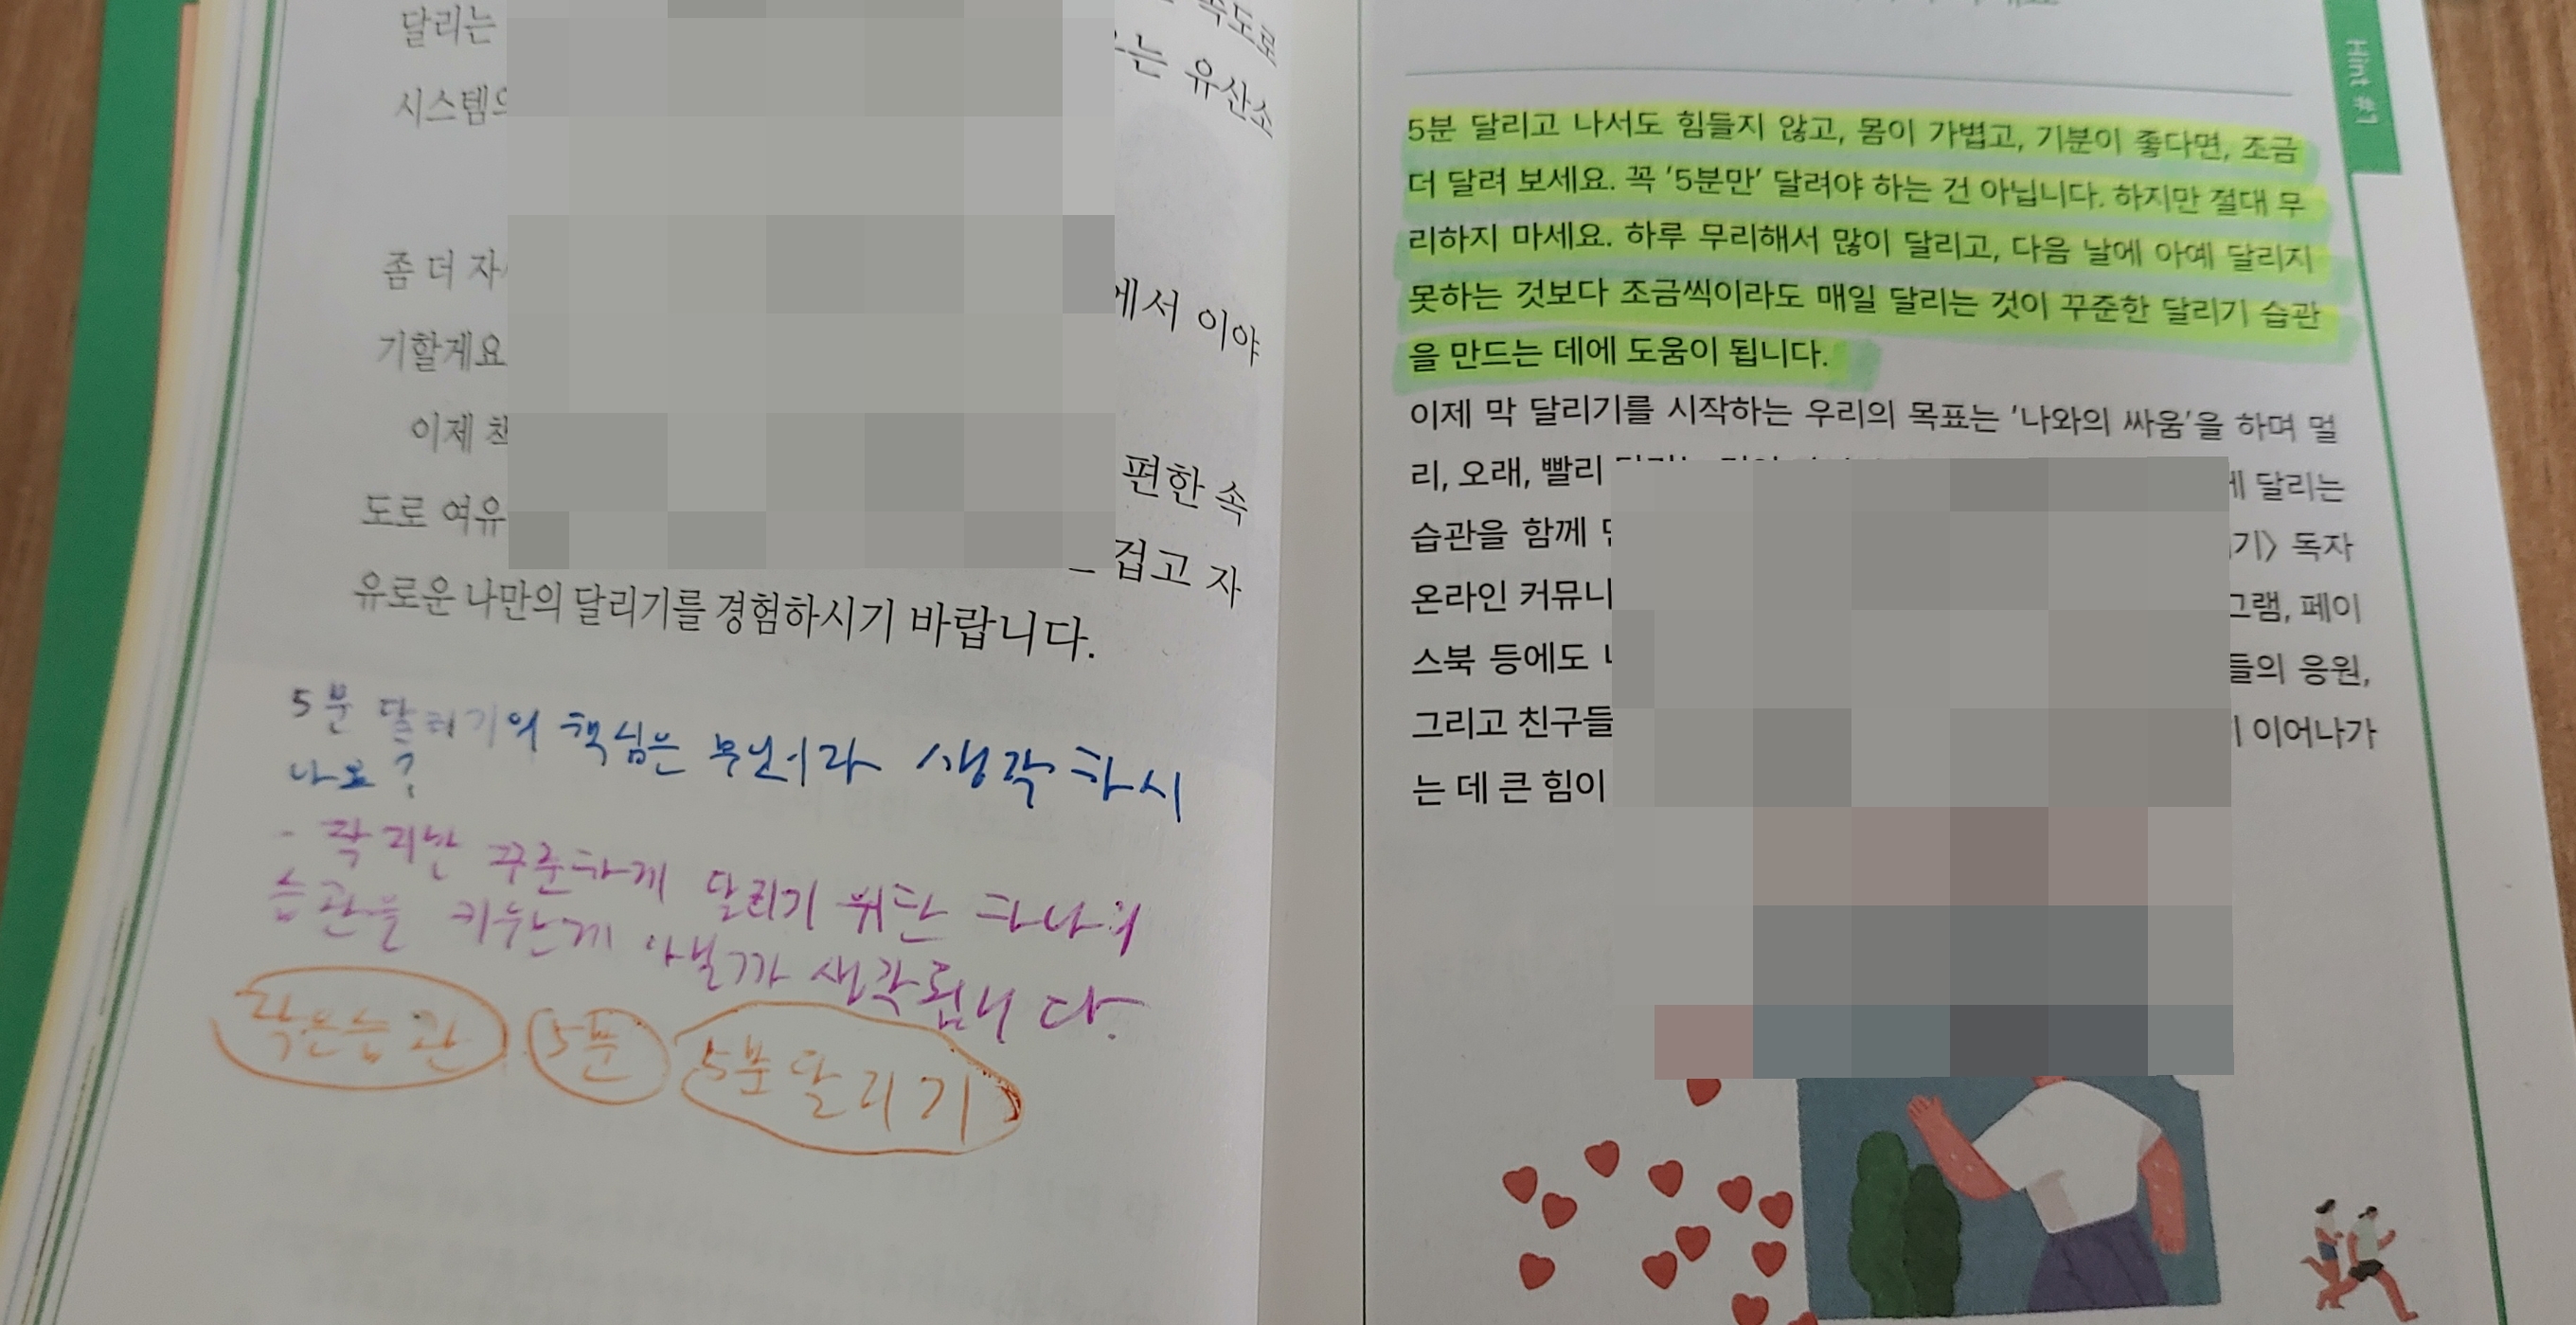 달리는
시스템의
유산소
좀 더 자
에서 이야
기할게요
이제 책
편한 속
도로 여유
겁고 자
유로운 나만의 달리기를 경험하시기 바랍니다.
5분 달리기의 핵심은 무엇이라 생각하시
나요?
- 작지만 꾸준하게 달리기 위한 하나의
습관을 키우는게 아닐까 생각됩니다.
작은습관 5분 5분달리기
Hint #1
5분 달리고 나서도 힘들지 않고, 몸이 가볍고, 기분이 좋다면, 조금
더 달려 보세요. 꼭 '5분만' 달려야 하는 건 아닙니다. 하지만 절대 무
리하지 마세요. 하루 무리해서 많이 달리고, 다음 날에 아예 달리지
못하는 것보다 조금씩이라도 매일 달리는 것이 꾸준한 달리기 습관
을 만드는 데에 도움이 됩니다.
이제 막 달리기를 시작하는 우리의 목표는 '나와의 싸움'을 하며 멀
리, 오래, 빨리 달리는
습관을 함께 기> 독자
온라인 커뮤니 그램, 페이
스북 등에도 들의 응원,
그리고 친구들 이어나가
는 데 큰 힘이